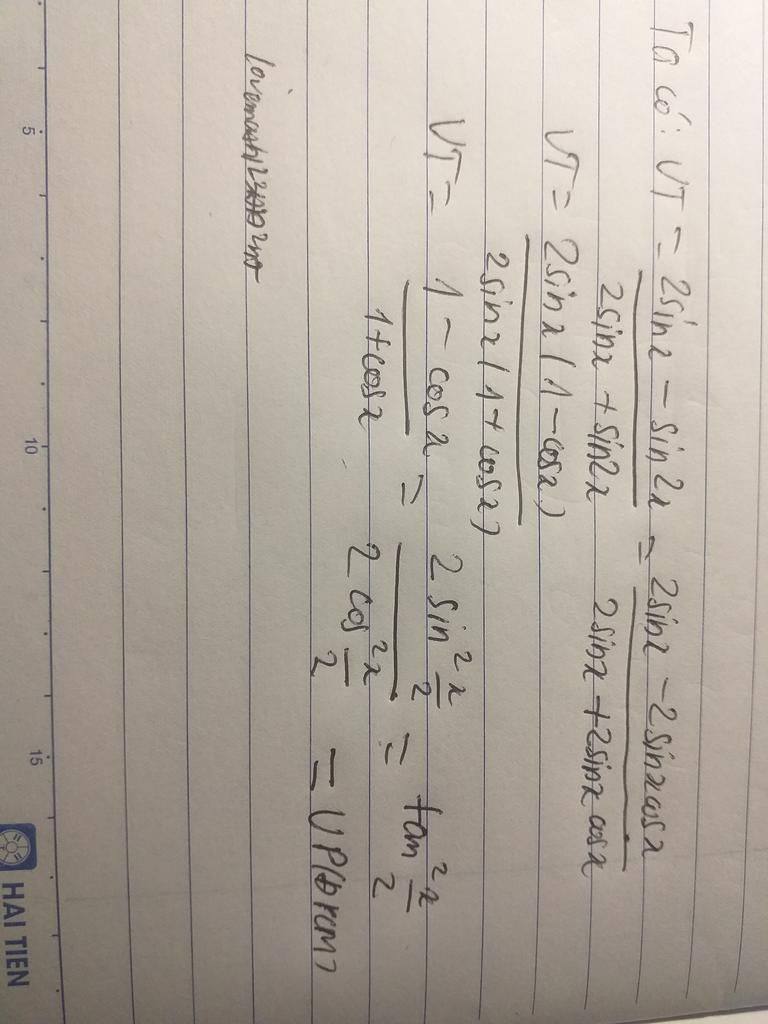 Ta có: VT = 2sinx - sin2x / 2sinx + sin2x = 2sinx - 2sinxcosx / 2sinx + 2sinx cosx
VT = 2sinx(1-cosx) / 2sinx(1+cosx)
VT = 1 - cosx / 1+cosx = 2sin² x/2 / 2cos² x/2 = tan² x/2
= VP(đpcm)
5 10 15
HAI TIEN